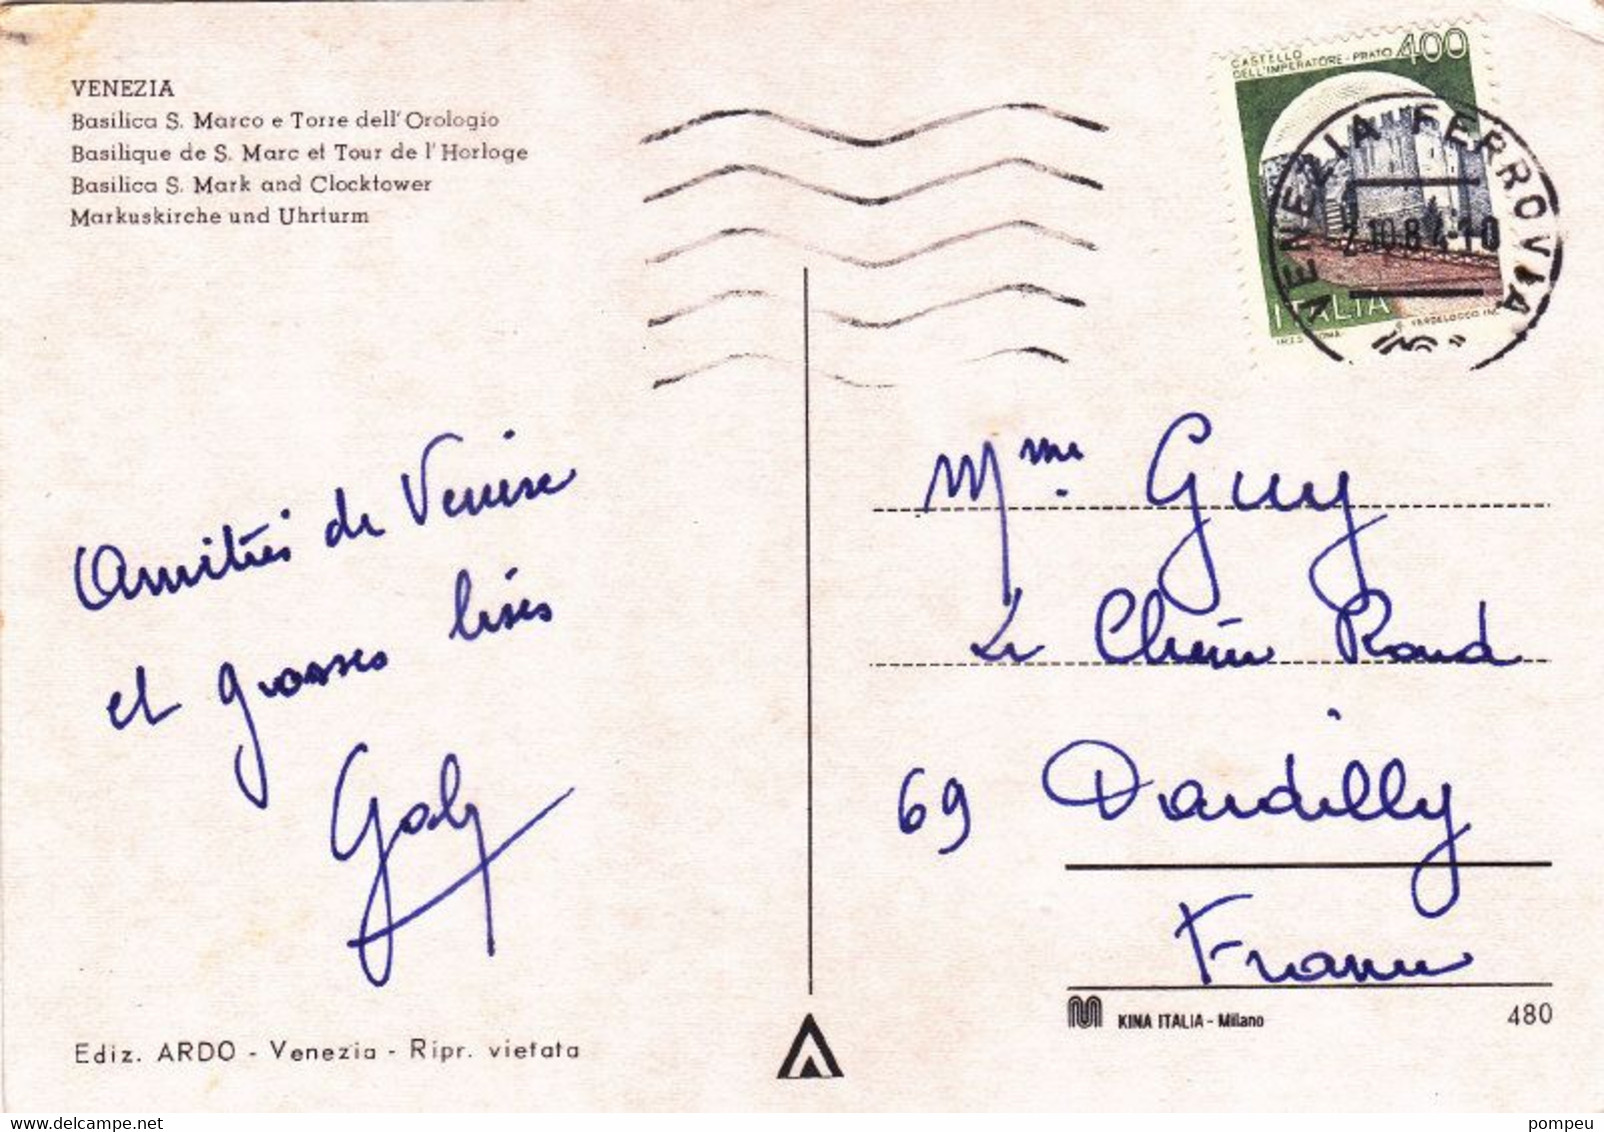 VENEZIA
Basilica S. Marco e Torre dell' Orologio
Basilique de S. Marc et Tour de l' Horloge
Basilica S. Mark and Clocktower
Markuskirche und Uhrturm
CASTELLO
DELL'IMPERATORE - PRATO 400
ITALIA
VENEZIA FERROVIA
2.10.84-10
Amitiés de Venise
et grosses bises
Mme. Guy
Le Chêne Rond
69 Dardilly
France
Ediz. ARDO - Venezia - Ripr. vietata
KINA ITALIA - Milano
480
pompeu